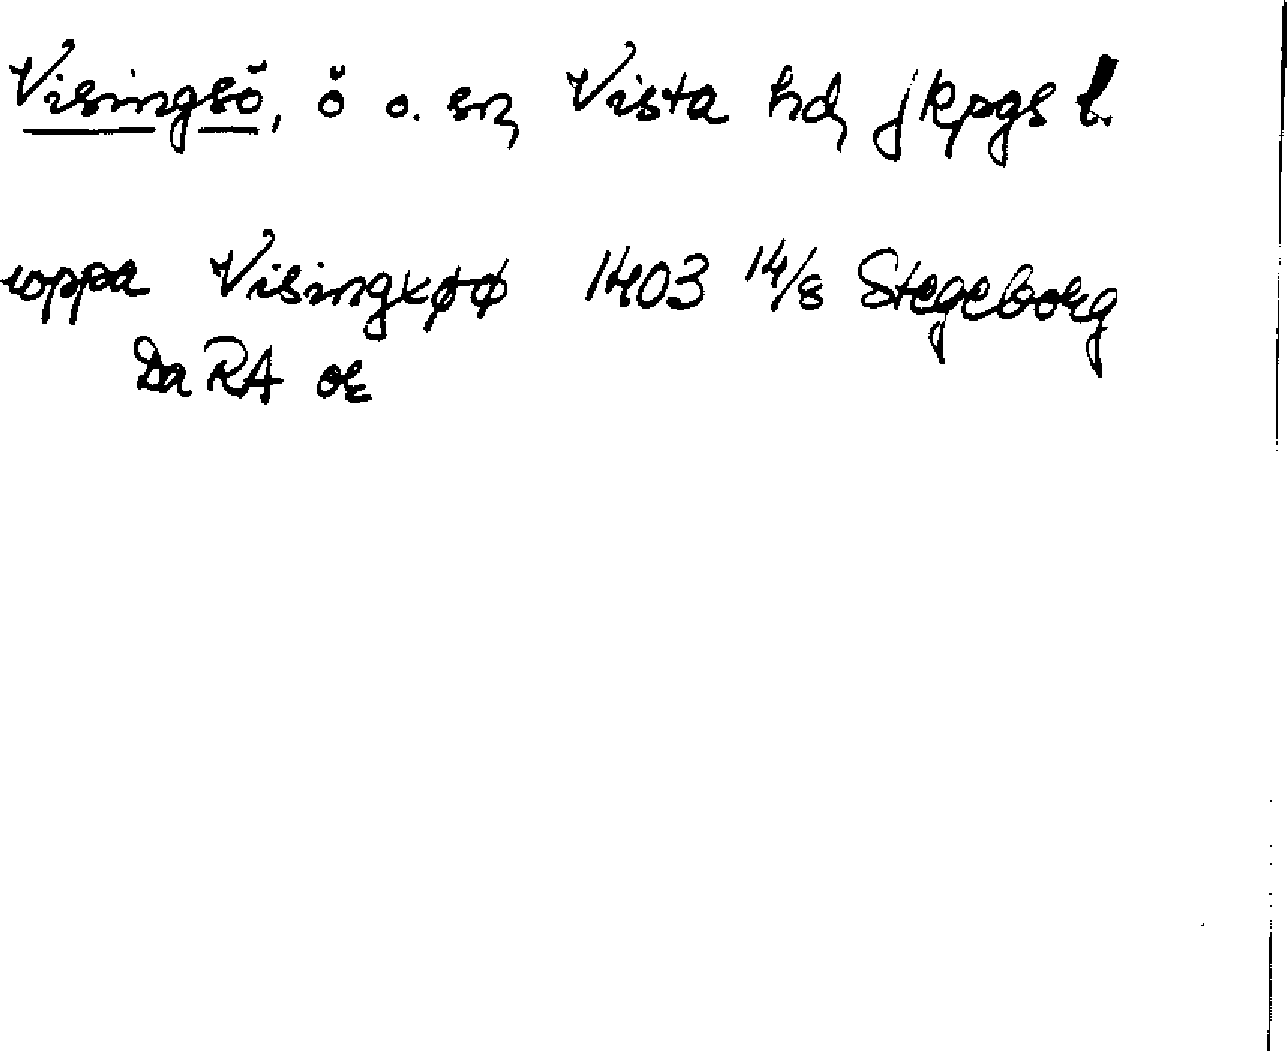 Visingsö, ö o. sn, Vista hd, Jkpgs l.
uppa Visingxøø 1403 14/8 Stegeborg
Da RA or